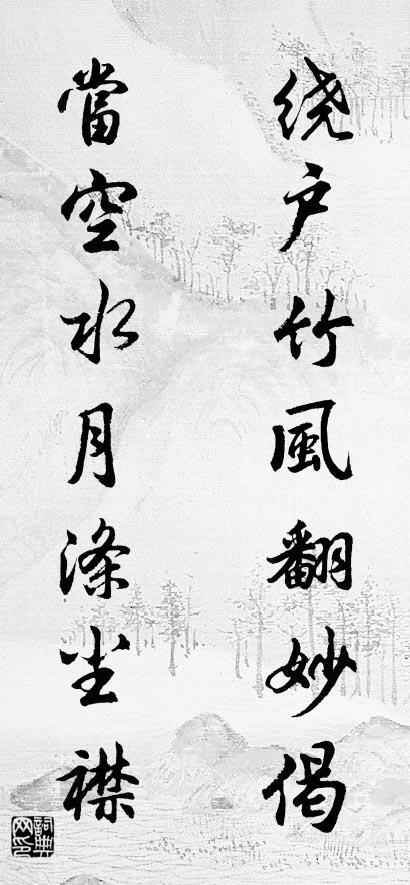 绕户竹風翻妙偈
當空水月涤尘襟
詞典
网印